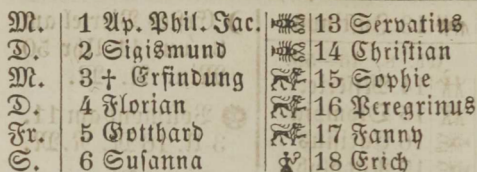 M. 1 Ap. Phil. Jac. 13 Servatius
D. 2 Sigismund 14 Chriſtian
M. 3 † Erfindung 15 Sophie
D. 4 Florian 16 Peregrinus
Fr. 5 Gotthard 17 Fanny
S. 6 Suſanna 18 Erich